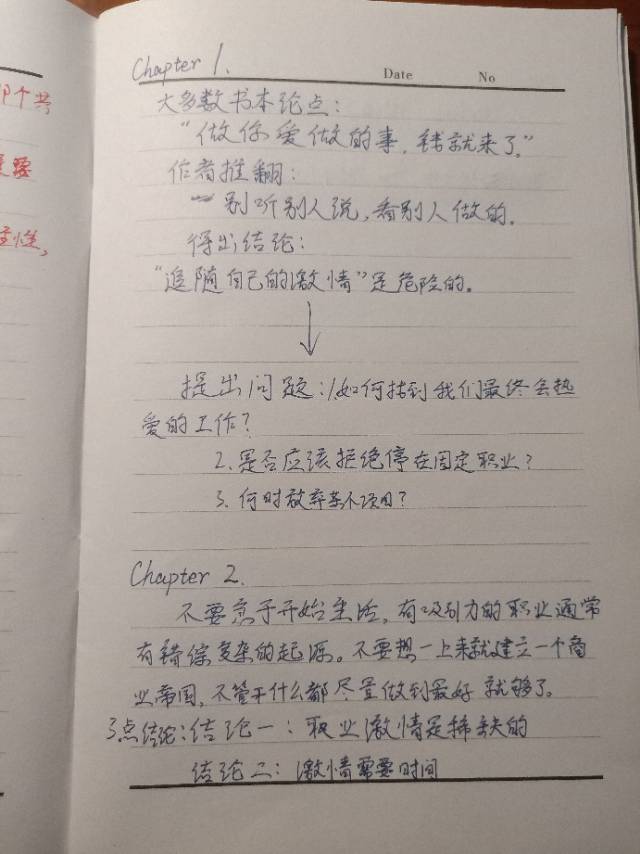 那个共
重要
性,
Chapter 1.
Date No
大多数书本论点:
“做你爱做的事,钱就来了。”
作者推翻:
别听别人说,看别人做的。
得出结论:
“追随自己的激情”是危险的。
提出问题:1.如何找到我们最终会热
爱的工作?
2.是否应该拒绝停在固定职业?
3.何时放弃某个项目?
Chapter 2.
不要急于开始生活,有吸引力的职业通常
有错综复杂的起源。不要想一上来就建立一个商
业帝国,不管干什么都尽量做到最好 就够了。
3点结论:结论一:职业激情是稀缺的
结论二:激情需要时间